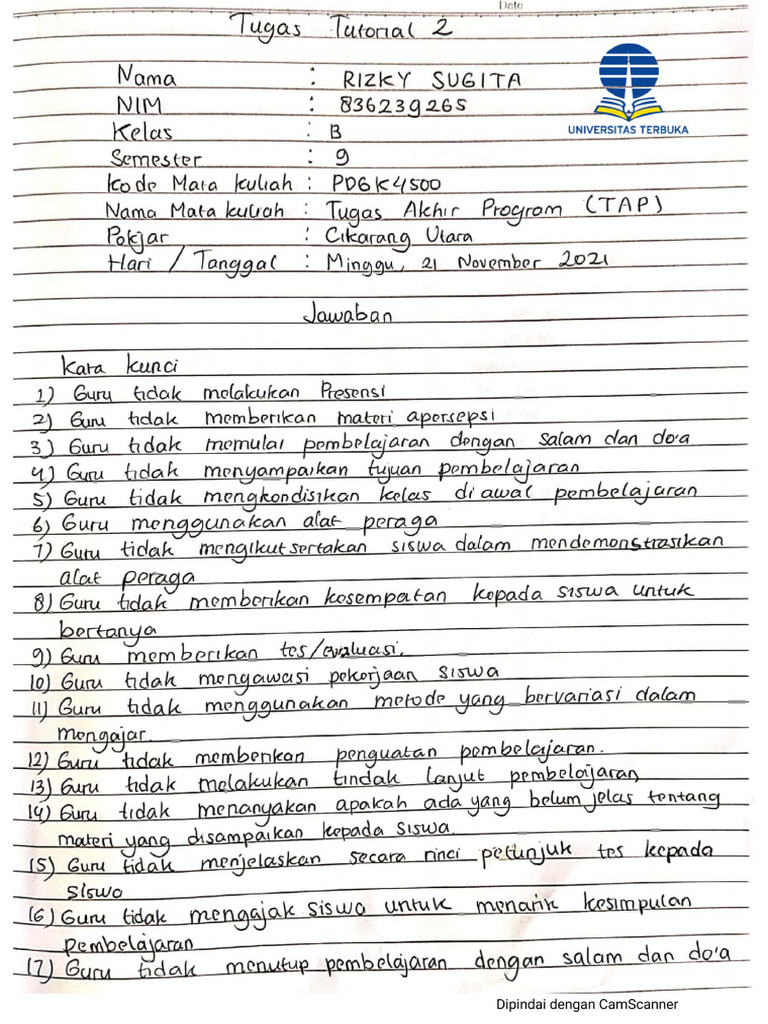 Date
Tugas Tutorial 2
Nama : RIZKY SUGITA
NIM : 836239265
UNIVERSITAS TERBUKA
Kelas : B
Semester : 9
Kode Mata kuliah : PDGK4500
Nama Mata kuliah : Tugas Akhir Program (TAP)
Pokjar : Cikarang Utara
Hari / Tanggal : Minggu, 21 November 2021
Jawaban
Kata kunci
1) Guru tidak melakukan Presensi
2) Guru tidak memberikan materi apersepsi
3) Guru tidak memulai pembelajaran dengan salam dan do'a
4) Guru tidak menyampaikan tujuan pembelajaran
5) Guru tidak mengkondisikan kelas di awal pembelajaran
6) Guru menggunakan alat peraga
7) Guru tidak mengikutsertakan siswa dalam mendemonstrasikan
alat peraga
8) Guru tidak memberikan kesempatan kepada siswa untuk
bertanya
9) Guru memberikan tes/evaluasi.
10) Guru tidak mengawasi pekerjaan siswa
11) Guru tidak menggunakan metode yang bervariasi dalam
mengajar.
12) Guru tidak memberikan penguatan pembelajaran.
13) Guru tidak melakukan tindak lanjut pembelajaran
14) Guru tidak menanyakan apakah ada yang belum jelas tentang
materi yang disampaikan kepada siswa.
15) Guru tidak menjelaskan secara rinci petunjuk tes kepada
siswa
16) Guru tidak mengajak siswa untuk menarik kesimpulan
pembelajaran
17) Guru tidak menutup pembelajaran dengan salam dan do'a
Dipindai dengan CamScanner